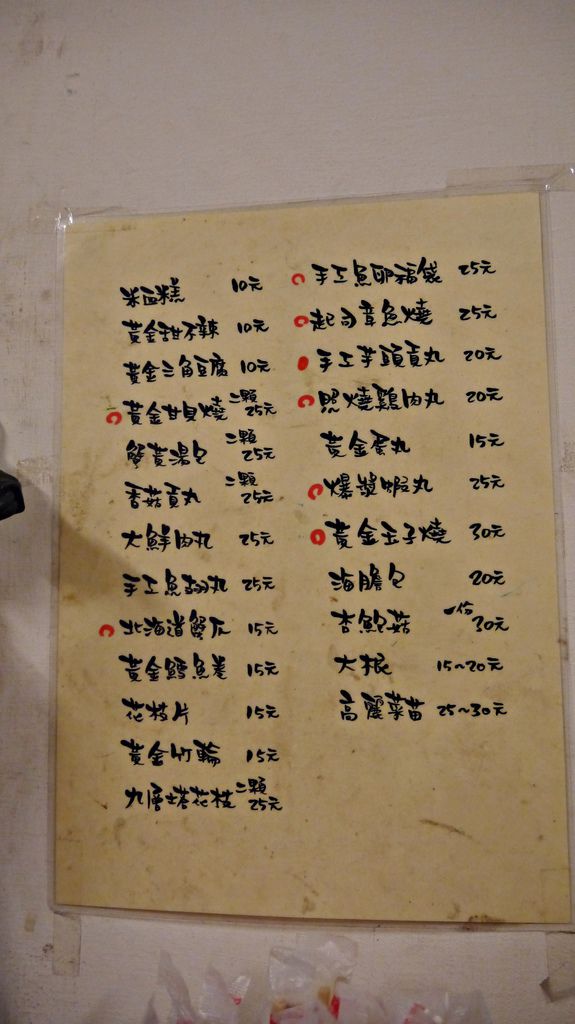 米血糕 10元
黃金甜不辣 10元
黃金三角豆腐 10元
黃金甘貝燒 二顆 25元
蟹黃湯包 二顆 25元
香菇貢丸 二顆 25元
大鮮肉丸 25元
手工魚翅丸 25元
北海道蟹爪 15元
黃金鱈魚卷 15元
花枝片 15元
黃金竹輪 15元
九層塔花枝 二顆 25元
手工魚卵福袋 25元
起司章魚燒 25元
手工芋頭貢丸 20元
照燒雞肉丸 20元
黃金蛋丸 15元
爆漿蝦丸 25元
黃金玉子燒 30元
海膽包 20元
杏鮑菇 一份 30元
大根 15~20元
高麗菜苗 25~30元